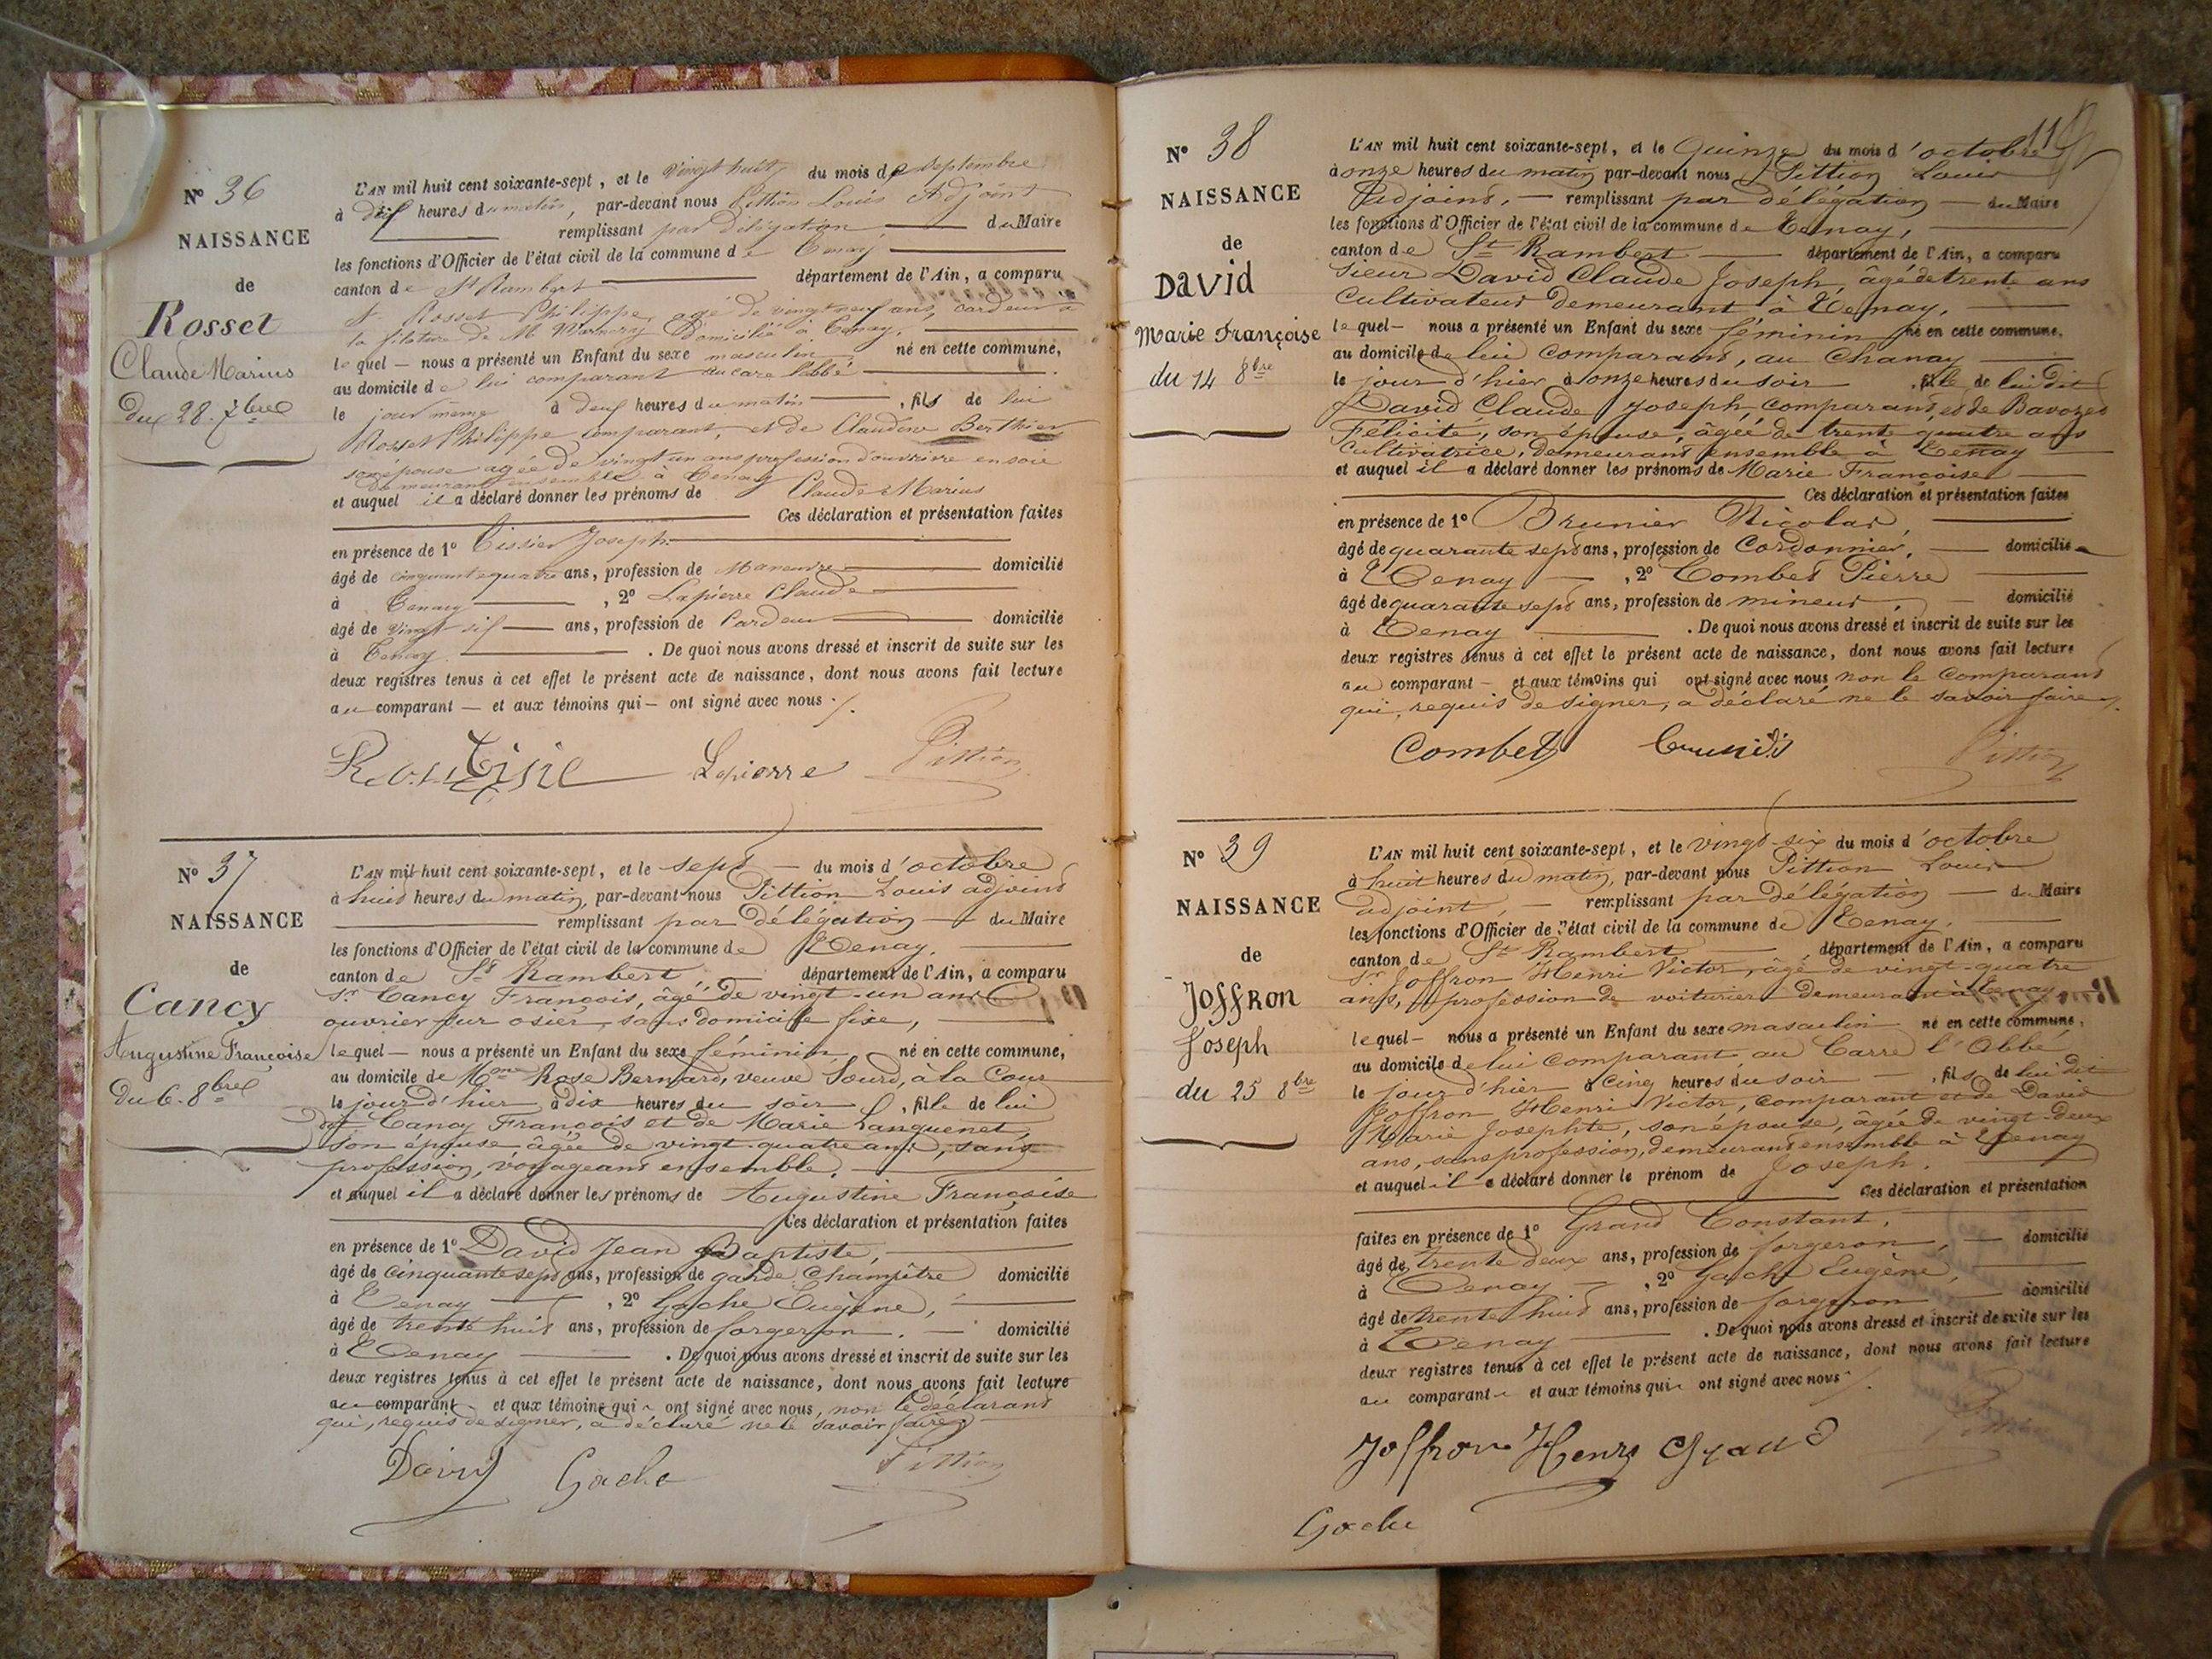 N° 36
NAISSANCE
de
Rosset
Claude Marius
Du 28 7bre
L'AN mil huit cent soixante-sept, et le vingt huit du mois de septembre
à dix heures du matin, par-devant nous Pittion Louis Adjoint
remplissant par délégation du Maire
les fonctions d'Officier de l'état civil de la commune de Tenay
canton de St Rambert département de l'Ain, a comparu
Sr Rosset Philippe, agé de vingt neuf ans, cardeur à
la filature de M Warnery Domicilié à Tenay,
lequel nous a présenté un Enfant du sexe masculin né en cette commune,
au domicile de lui comparant au care l'abbé
le jour même à deux heures du matin, fils de lui
Rosset Philippe comparant, et de Claudine Berthier
son epouse agée de vingt un ans profession d'ouvrière en soie
demeurant ensemble à Tenay
et auquel il a déclaré donner les prénoms de Claude Marius
Ces déclaration et présentation faites
en présence de 1° Tissier Joseph
âgé de cinquante quatre ans, profession de Maneuvre domicilié
à Tenay, 2° Lapierre Claude
âgé de vingt six ans, profession de Cardeur domicilié
à Tenay. De quoi nous avons dressé et inscrit de suite sur les
deux registres tenus à cet effet le présent acte de naissance, dont nous avons fait lecture
au comparant — et aux témoins qui — ont signé avec nous ./.
Lapierre Pittion
N° 37
NAISSANCE
de
Cancy
Augustine Françoise
Du 6. 8bre
L'AN mil huit cent soixante-sept, et le sept du mois d'octobre
à huit heures du matin, par-devant nous Pittion Louis adjoint
remplissant par délégation du Maire
les fonctions d'Officier de l'état civil de la commune de Tenay,
canton de St Rambert département de l'Ain, a comparu
Sr Cancy François, âgé de vingt-un ans
ouvrier sur osier, sans domicile fixe,
lequel — nous a présenté un Enfant du sexe féminin né en cette commune,
au domicile de Mme Rose Bernard, veuve Sourd, à la Cour
le jour d'hier à dix heures du soir, fille de lui
dit Cancy François et de Marie Languenet,
son épouse âgée de vingt-quatre ans, sans
profession, voyageant ensemble,
et auquel il a déclaré donner les prénoms de Augustine Françoise
Ces déclaration et présentation faites
en présence de 1° David Jean Baptiste,
âgé de cinquante sept ans, profession de garde Champêtre domicilié
à Tenay, 2° Gache Eugène,
âgé de trente huit ans, profession de forgeron, domicilié
à Tenay. De quoi nous avons dressé et inscrit de suite sur les
deux registres tenus à cet effet le présent acte de naissance, dont nous avons fait lecture
au comparant et aux témoins qui ont signé avec nous, non le déclarant
qui, requis de signer, a déclaré ne le savoir faire
David Gache Pittion
11
N° 38
NAISSANCE
de
David
Marie Françoise
du 14 8bre
L'AN mil huit cent soixante-sept, et le Quinze du mois d'octobre
à onze heures du matin par-devant nous Pittion Louis
Adjoint, — remplissant par délégation — du Maire
les fonctions d'Officier de l'état civil de la commune de Tenay,
canton de St Rambert département de l'Ain, a comparu
Sieur David Claude Joseph, âgé de trente ans
Cultivateur demeurant à Tenay,
lequel — nous a présenté un Enfant du sexe féminin né en cette commune,
au domicile de lui comparant, au Chanay
le jour d'hier à onze heures du soir, fille de lui dit
David Claude Joseph, comparant, et de Bavozet
Félicité, son épouse, âgée de trente quatre ans
cultivatrice, demeurant ensemble à Tenay
et auquel il a déclaré donner les prénoms de Marie Françoise
Ces déclaration et présentation faites
en présence de 1° Brunier Nicolas,
âgé de quarante sept ans, profession de Cordonnier, domicilié
à Tenay, 2° Combet Pierre
âgé de quarante sept ans, profession de mineur, domicilié
à Tenay. De quoi nous avons dressé et inscrit de suite sur les
deux registres tenus à cet effet le présent acte de naissance, dont nous avons fait lecture
au comparant — et aux témoins qui ont signé avec nous non le comparant
qui, requis de signer, a déclaré ne le savoir faire ./.
Combet Pittion
N° 39
NAISSANCE
de
Joffron
Joseph
du 25 8bre
L'AN mil huit cent soixante-sept, et le vingt-six du mois d'octobre
à huit heures du matin, par-devant nous Pittion Louis
adjoint, — remplissant par délégation — du Maire
les fonctions d'Officier de l'état civil de la commune de Tenay,
canton de St Rambert, département de l'Ain, a comparu
Sr Joffron Henri Victor, âgé de vingt-quatre
ans, profession de voiturier demeurant à Tenay
lequel — nous a présenté un Enfant du sexe masculin né en cette commune,
au domicile de lui comparant au Carré l'Abbé
le jour d'hier à Cinq heures du soir, fils de lui dit
Joffron Henri Victor, comparant et de David
Marie Josephte, son épouse, âgée de vingt-deux
ans, sans profession, demeurant ensemble à Tenay
et auquel il a déclaré donner le prénom de Joseph.
Ces déclaration et présentation
faites en présence de 1° Grand Constant,
âgé de trente deux ans, profession de forgeron, domicilié
à Tenay, 2° Gache Eugène,
âgé de trente huit ans, profession de forgeron domicilié
à Tenay. De quoi nous avons dressé et inscrit de suite sur les
deux registres tenus à cet effet le présent acte de naissance, dont nous avons fait lecture
au comparant et aux témoins qui ont signé avec nous
Joffron Henry Grand
Pittion
Gache